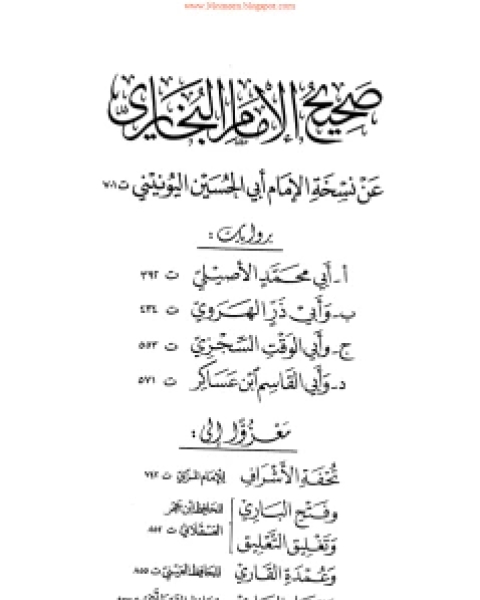 www.Momeen.blogspot.com
صحيح الإمام البخاري
عَنْ نسْخَةِ الإمَام أبي الحُسَين اليُونيْني ت ٧٠١
بروايات :
أ - أبي محمَّدٍ الأصيْليّ ت ٣٩٢
ب - وَأبيْ ذَرٍّ الهَرَويّ ت ٤٣٤
ج - وأبي الوَقْتِ السِّجْزيّ ت ٥٥٣
د - وَأبي القَاسِم ابن عَسَاكِر ت ٥٧١
مَعْزُوًّا إلى :
تُحفَةِ الأشْرافِ للإمام المزيّ ت ٧٤٢
وفَتْحِ البَاري للحَافظ ابن حَجَر
وَتَغْلِيق التَّعْليْق العَسْقلَانيّ ت ٨٥٢
وَعُمْدَةِ القَاري للحَافظ العَيْنيّ ت ٨٥٥